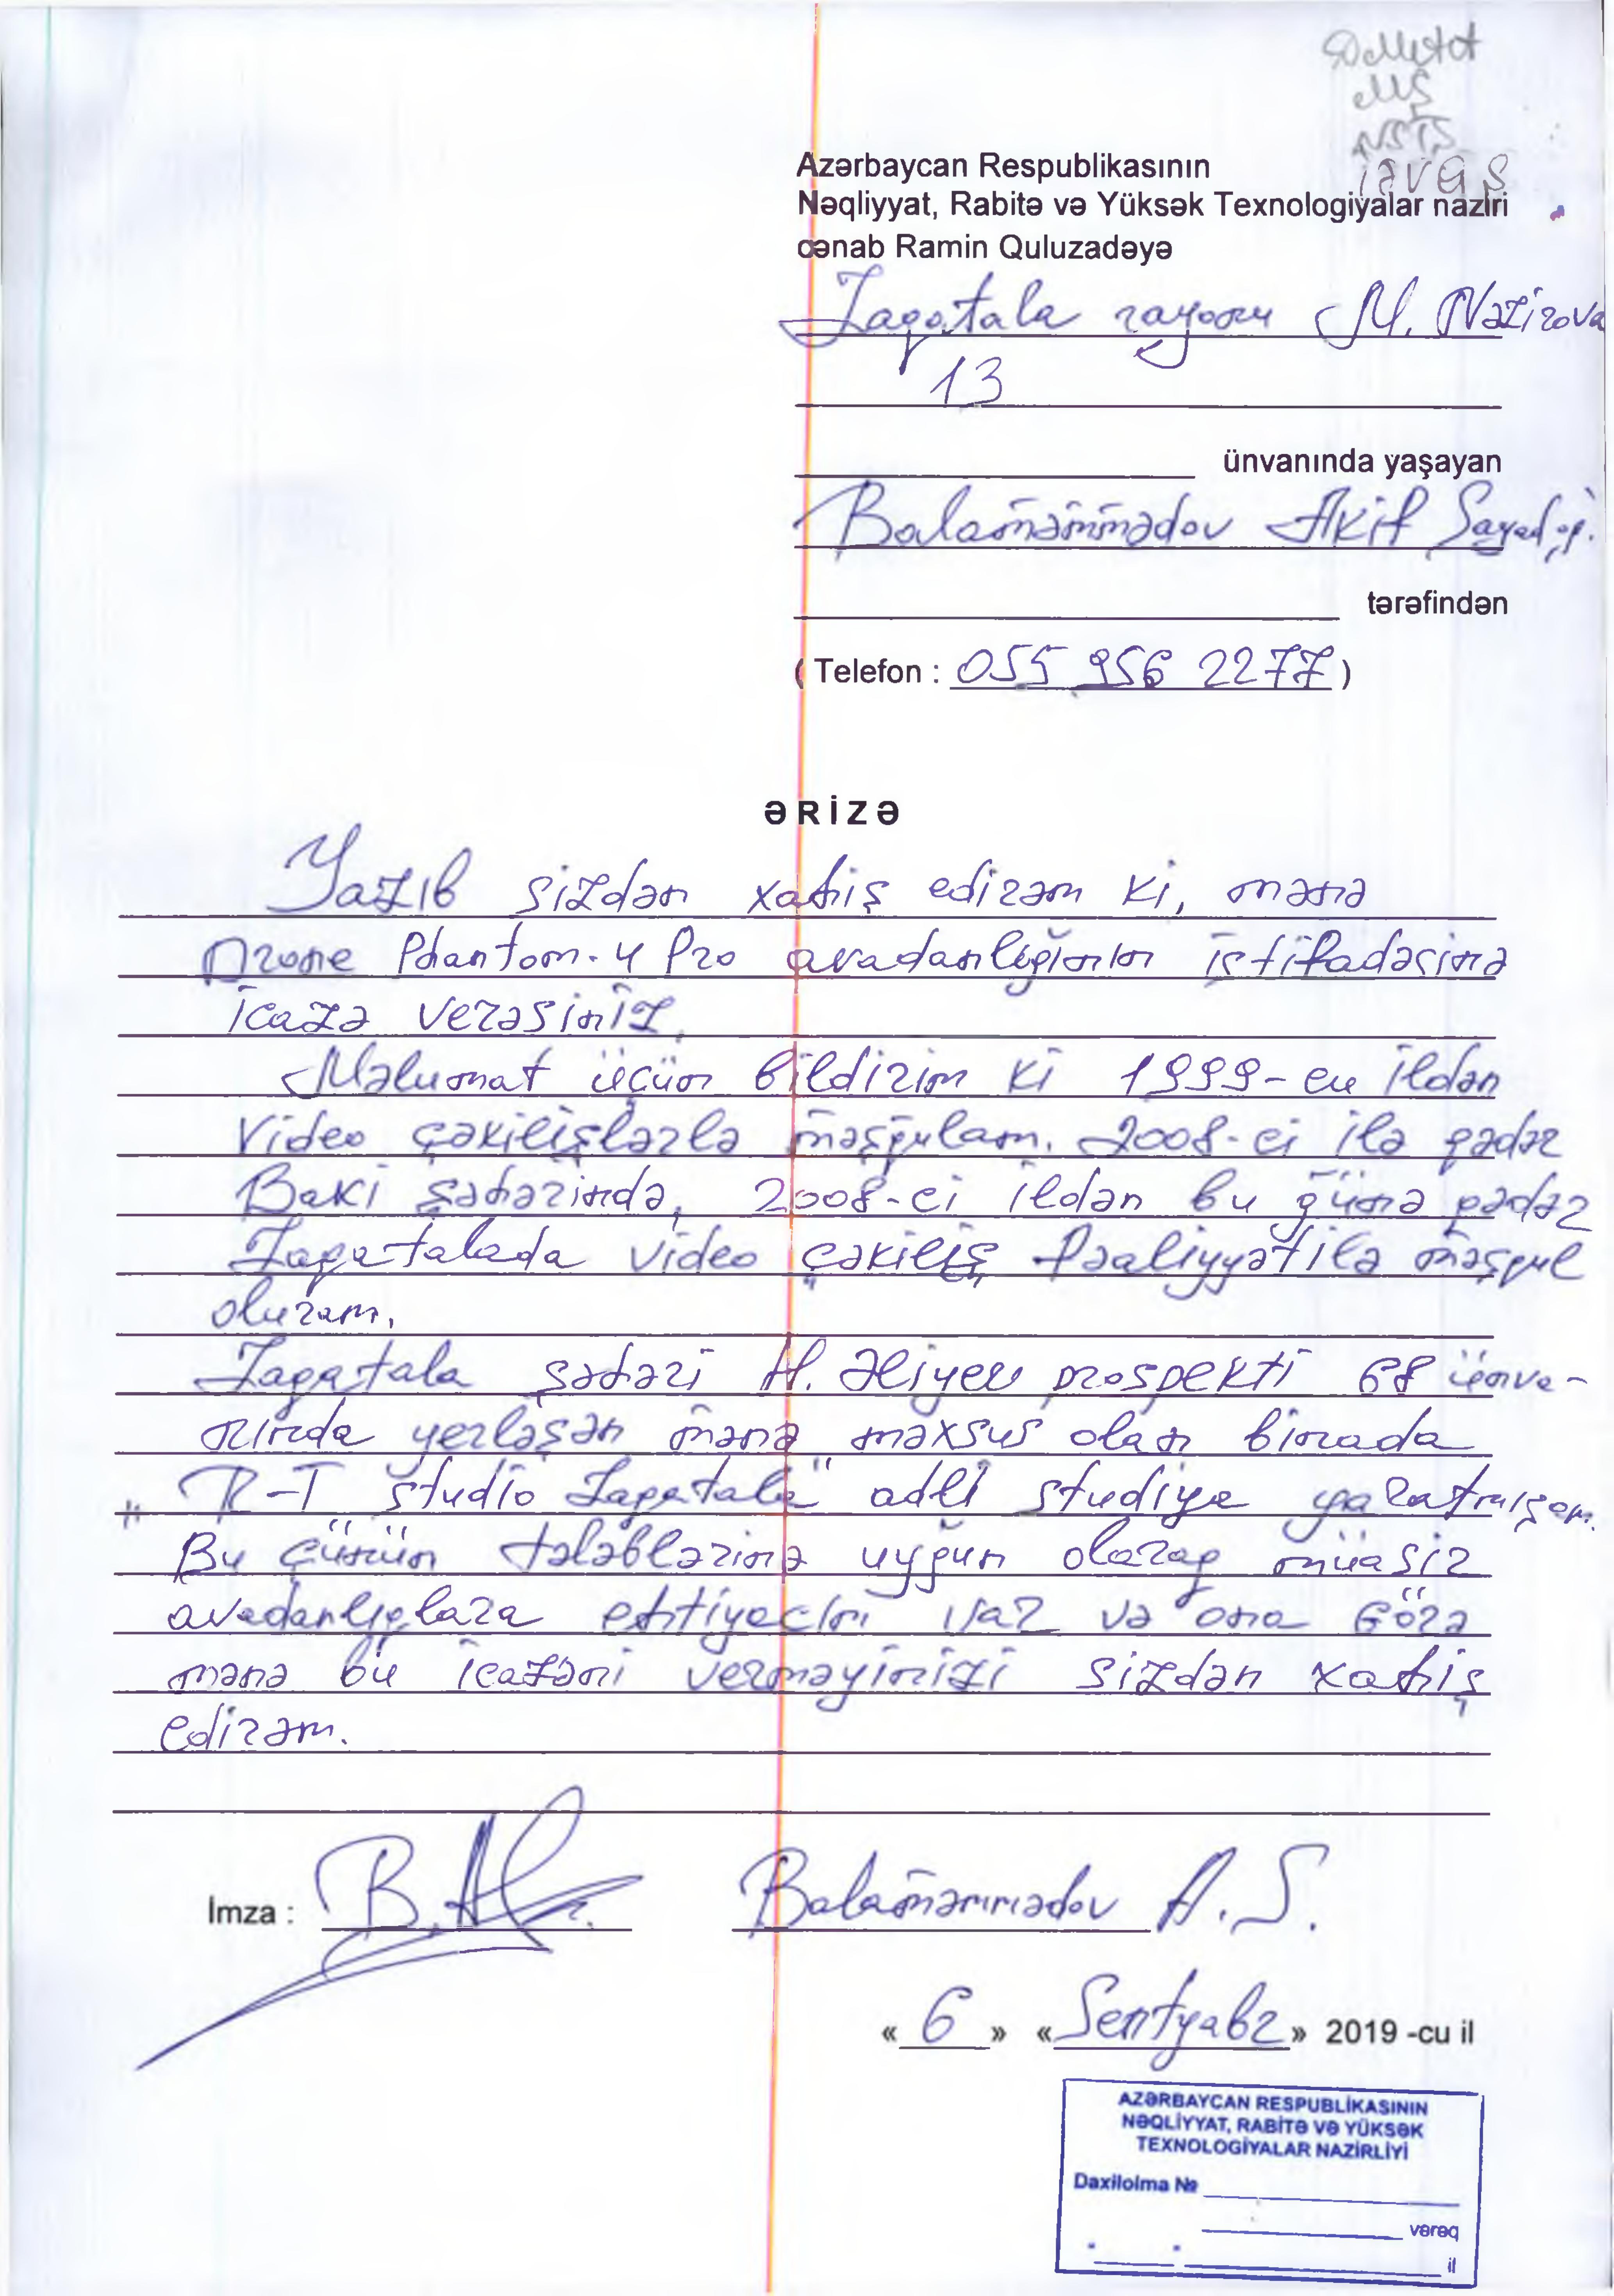 MŞ
NSTŞ
İƏVGŞ
Azərbaycan Respublikasının
Nəqliyyat, Rabitə və Yüksək Texnologiyalar naziri
cənab Ramin Quluzadəyə
Zaqatala rayonu M. Nəzirova
13
ünvanında yaşayan
Balaməmmədov Akif
tərəfindən
( Telefon : 055 956 2277 )
ƏRİZƏ
Yazıb sizdən xahiş edirəm ki, mənə
Drone Phantom-4 Pro avadanlığının istifadəsinə
icazə verəsiniz.
Məlumat üçün bildirim ki 1999-cu ildən
Video çəkilişlərlə məşğulam. 2008-ci ilə qədər
Baki şəhərində, 2008-ci ildən bu günə qədər
Zaqatalada video çəkiliş fəaliyyətilə məşğul
oluram.
Zaqatala şəhəri H. Əliyev prospekti 68 ünva-
nında yerləşən mənə məxsus olan binada
"R-T studio Zaqatala" adlı studiya yaratmışam.
Bu günün tələblərinə uyğun olaraq müasir
avadanlıqlara ehtiyacım var və ona görə
mənə bu icazəni verməyinizi sizdən xahiş
edirəm.
Imza : B.A Balaməmmədov A.S.
« 6 » « Sentyabr » 2019 -cu il
AZƏRBAYCAN RESPUBLİKASININ
NƏQLİYYAT, RABİTƏ VƏ YÜKSƏK
TEXNOLOGİYALAR NAZİRLİYİ
Daxilolma №
vərəq
il